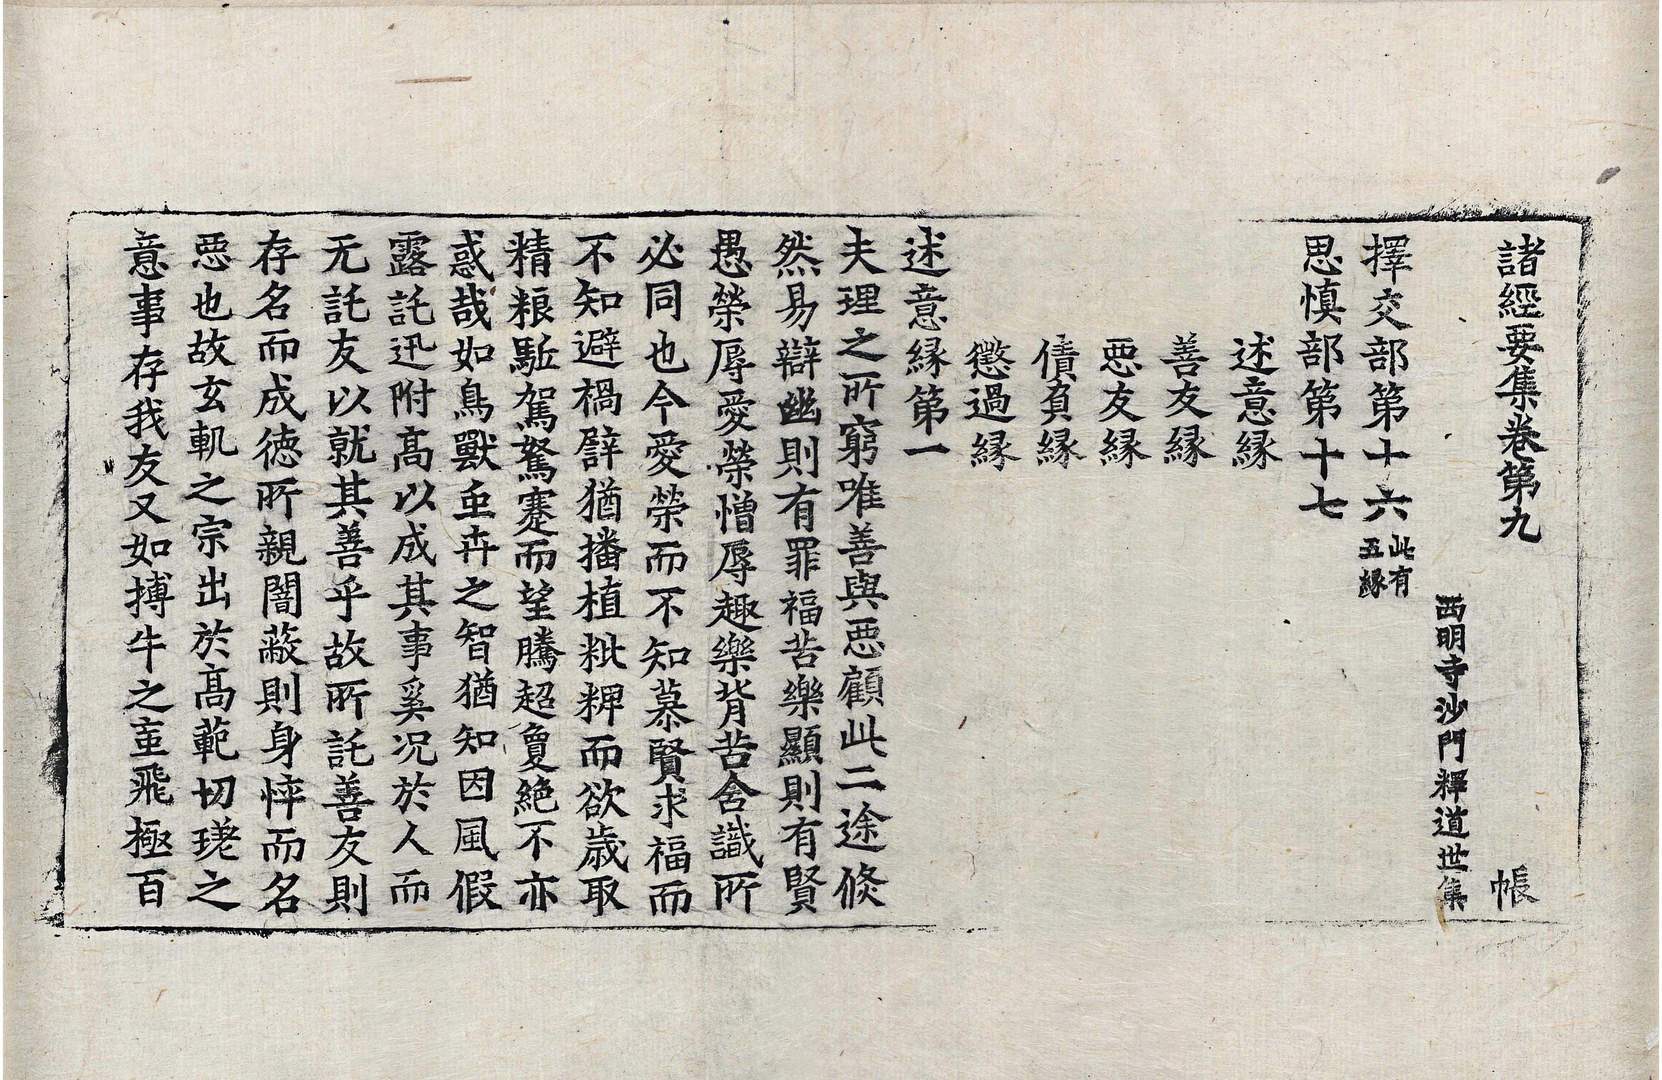 諸經要集卷第九　帳
西明寺沙門釋道世集
擇交部第十六此有五縁
思慎部第十七
述意縁
善友縁
悪友縁
債負縁
懲過縁
述意縁第一
夫理之所窮唯善與悪顧此二途倏
然易辯幽則有罪福苦樂顯則有賢
愚榮辱愛榮憎辱趣樂背苦含識所
必同也今愛榮而不知慕賢求福而
不知避禍譬猶播植粃粺而欲歲取
精粮駈駕駑蹇而望騰超敻絶不亦
惑哉如鳥獸虫卉之智猶知因風假
露託迅附高以成其事奚况於人而
无託友以就其善乎故所託善友則
存名而成徳所親闇蔽則身悴而名
悪也故玄軌之宗出於高範切瑳之
意事存我友又如搏牛之䖝飛極百